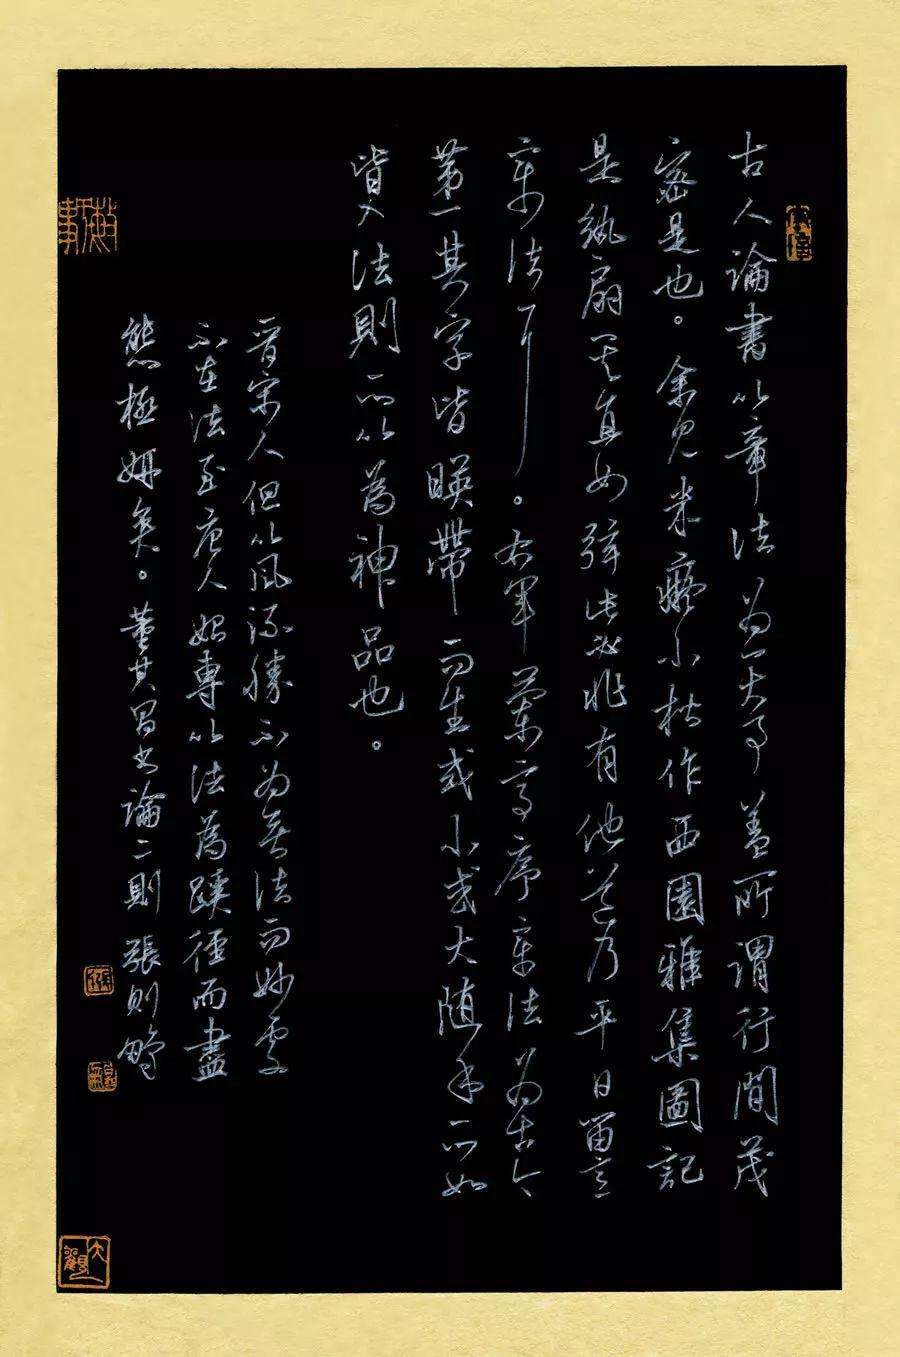 古人論書以章法為一大事蓋所謂行間茂
密是也。余見米癡小楷作西園雅集圖記
是紈扇其直如弦此必非有他道乃平日留意
章法耳。右軍蘭亭序章法為古今
第一其字皆暎帶而生或小或大随手所如
皆入法則所以為神品也。
晉宋人但以風流勝不為無法而妙處
不在法至唐人始專以法為蹊徑而盡
態極妍矣。董其昌書論二則 張則
大觀